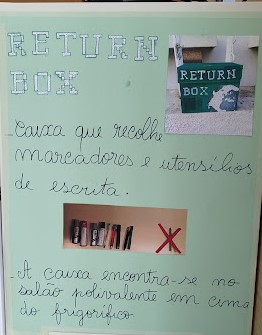 RETURN
BOX
RETURN
BOX
_ Caixa que recolhe
marcadores e utensílios
de escrita.
_ A caixa encontra-se no
salão polivalente em cima
do frigorifico